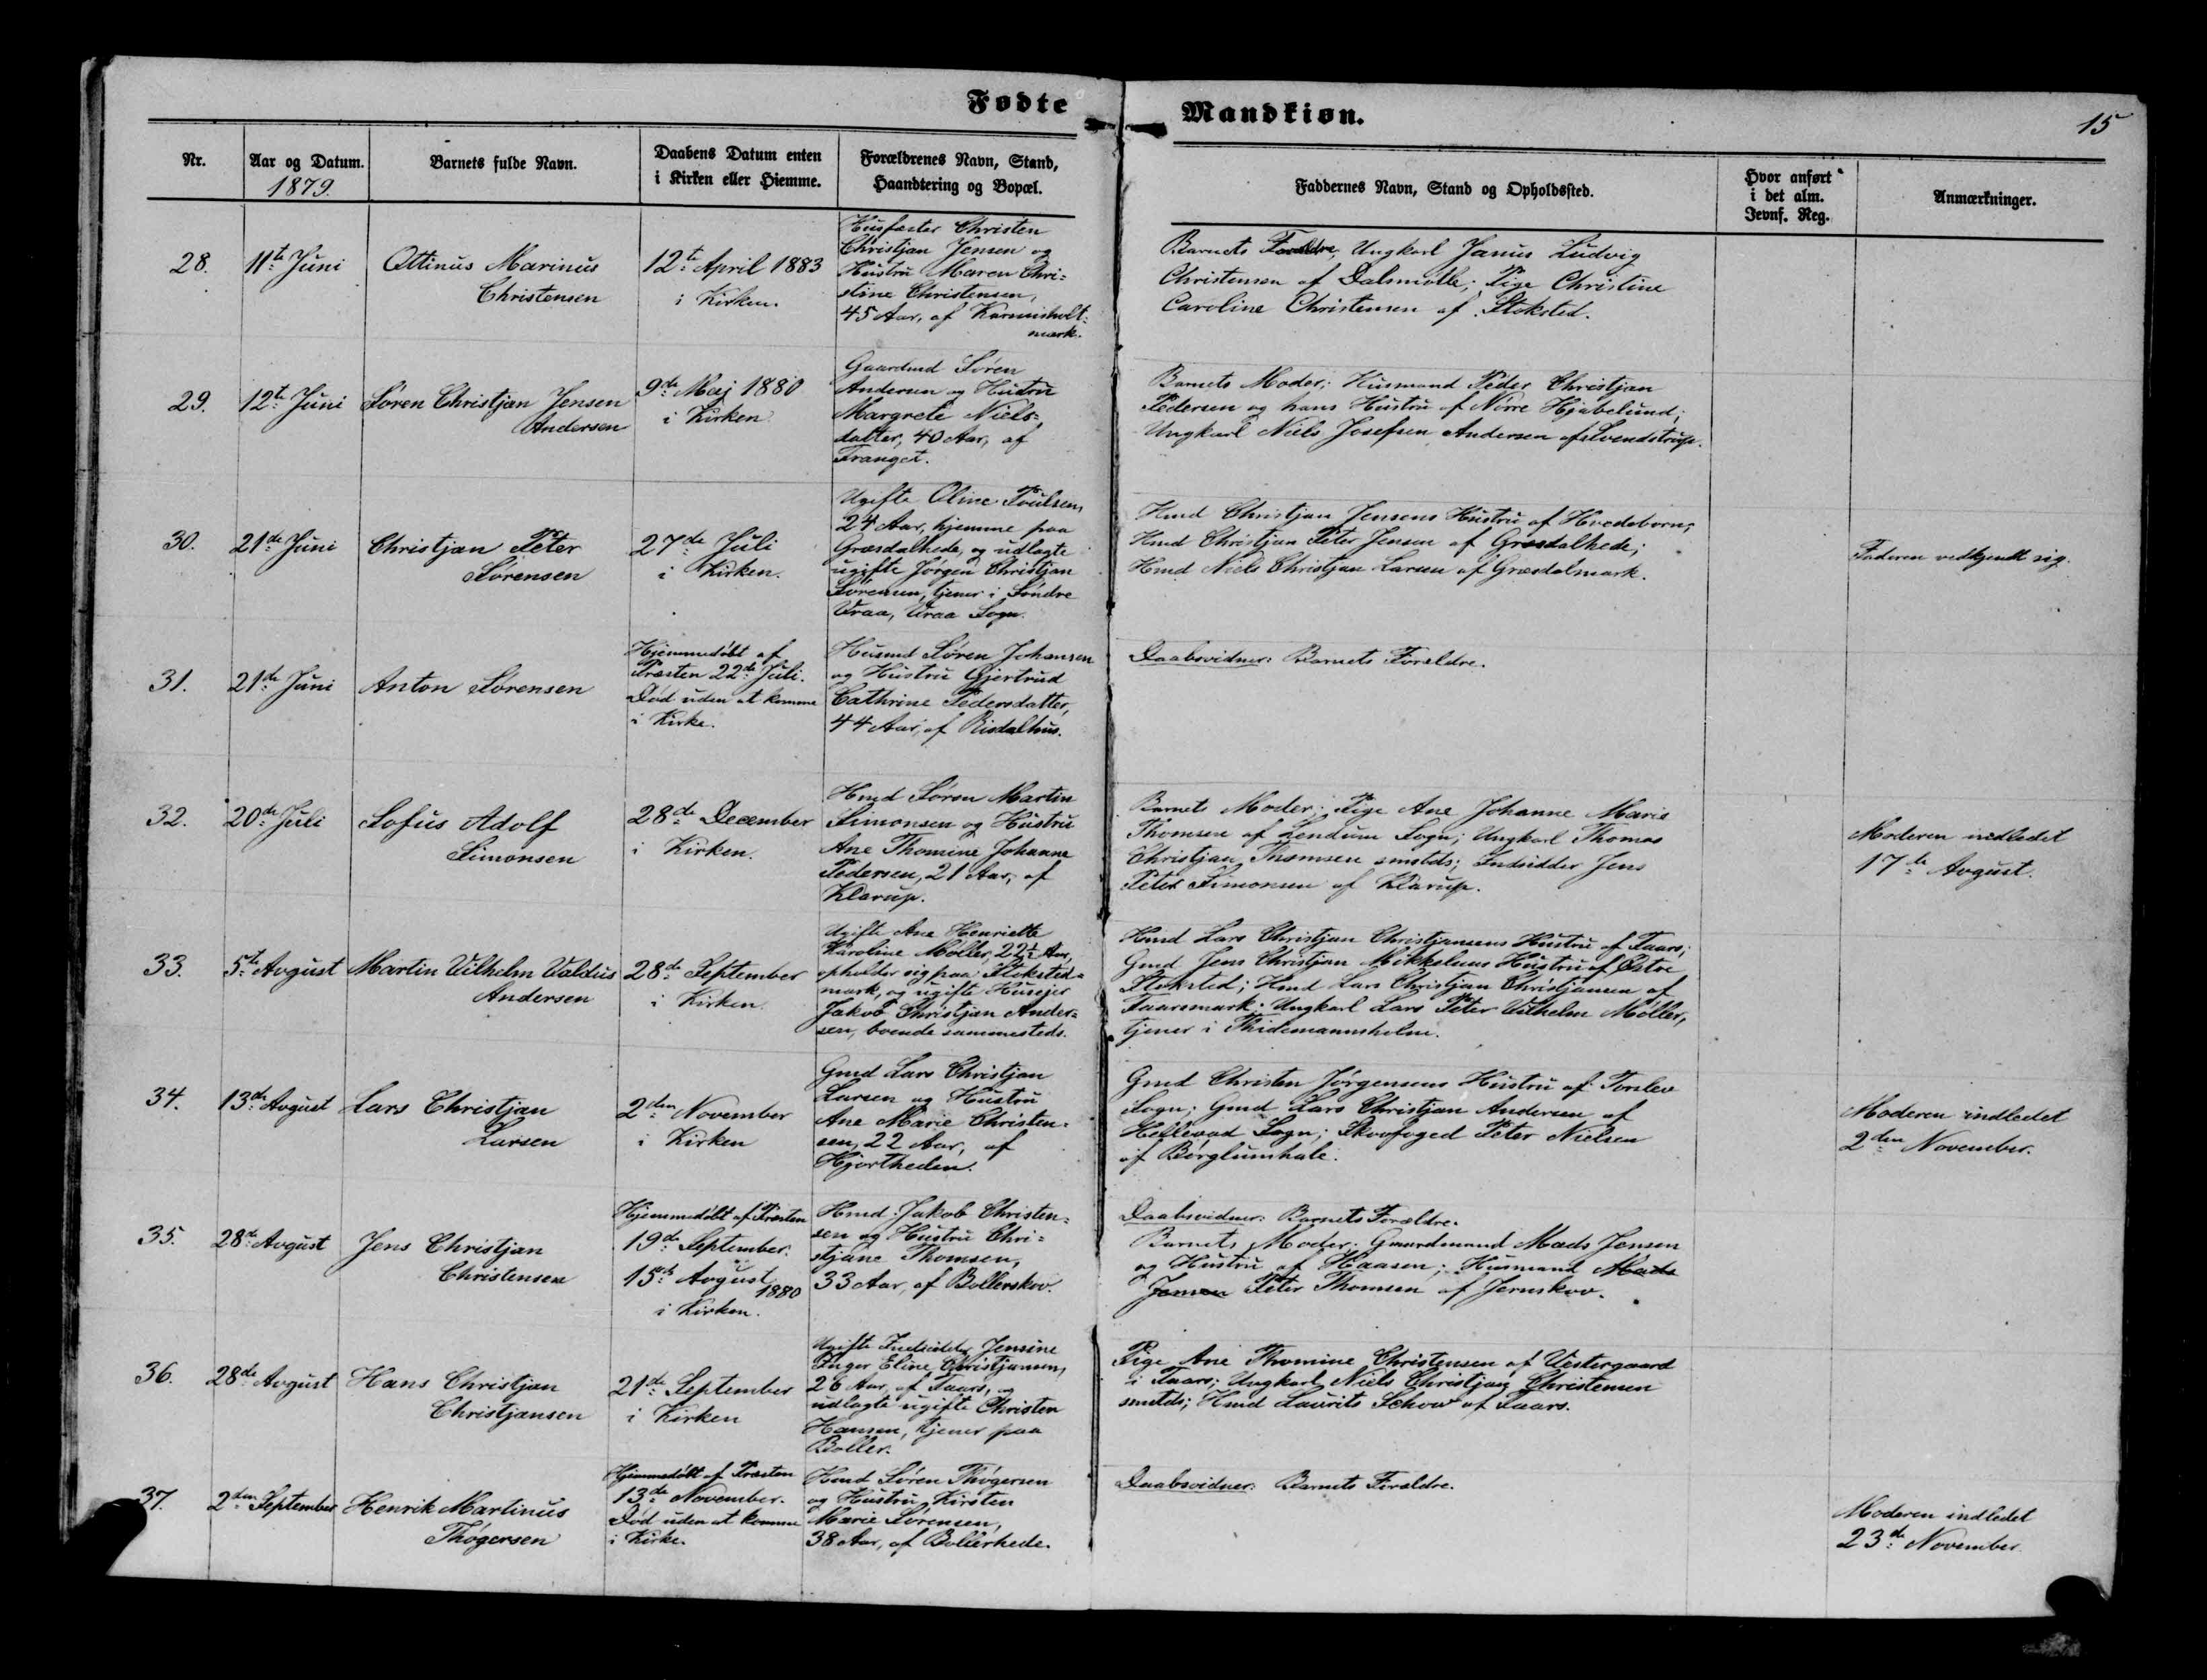 Fødte
Mandkiøn.
15
Nr.
Aar og Datum.
1879.
Barnets fulde Navn.
Daabens Datum enten
i Kirken eller Hiemme.
Forældrenes Navn, Stand,
Haandtering og Bopæl.
Faddernes Navn, Stand og Opholdssted.
Hvor anført
i det alm.
Jevnf. Reg.
Anmærkninger.
28.
11te Juni
Ottinus Marinus
Christensen
12te April 1883
i Kirken.
Husfæster Christen
Christjan Jensen og
Hustru Maren Chri-
stine Christensen,
45 Aar, af Karmisholt-
mark.
Barnets Forældre, Ungkarl Janus Ludvig
Christensen af Dalsmølle; Pige Christine
Caroline Christensen af Stoksted.
29.
12te Juni
Søren Christjan Jensen
Andersen
9de Maj 1880
i Kirken
Gaardmd Søren
Andersen og Hustru
Margrete Niels-
datter, 40 Aar, af
Tranget.
Barnets Moder; Husmand Peder Christjan
Pedersen og hans Hustru af Nørre Hjabelund;
Ungkarl Niels Josefsen Andersen af Svendstrup.
30.
21de Juni
Christjan Peter
Sørensen
27de Juli
i Kirken.
Ugifte Oline Poulsen,
24 Aar, hjemme paa
Græsdalhede, og udlagte
ugifte Jørgen Christjan
Sørensen, tjener i Søndre
Vraa, Vraa Sogn.
Hmd Christjan Jensens Hustru af Hvedeborn;
Hmd Christjan Peter Jensen af Græsdalhede;
Hmd Niels Christjan Larsen af Græsdalmark.
Faderen vedkjendt sig.
31.
21de Juni
Anton Sørensen
Hjemmedøbt af
Præsten 22de Juli.
Død uden at komme
i Kirke.
Husmd Søren Johansen
og Hustru Gjertrud
Cathrine Pedersdatter,
44 Aar, af Risdalhus.
Daabsvidner: Barnets Forældre.
32.
20de Juli
Sofus Adolf
Simonsen
28de December
i Kirken.
Hmd Søren Martin
Simonsen og Hustru
Ane Thomine Johanne
Pedersen, 21 Aar, af
Klarup.
Barnets Moder; Pige Ane Johanne Marie
Thomsen af Lendum Sogn; Ungkarl Thomas
Christjan Thomsen smstds; Indsidder Jens
Peter Simonsen af Klarup.
Moderen indledet
17de Avgust.
33.
5te Avgust
Martin Vilhelm Valdius
Andersen
28de September
i Kirken.
Ugifte Ane Henriette
Karoline Møller, 22½ Aar,
opholder sig paa Stoksted-
mark, og ugifte Husejer
Jakob Christjan Ander-
sen, boende sammesteds.
Hmd Lars Christjan Christjansens Hustru af Taars;
Gmd Jens Christjan Mikkelsens Hustru af Østre
Stoksted; Hmd Lars Christjan Christjansen af
Taarsmark; Ungkarl Lars Peter Vilhelm Møller,
tjener i Thidemannsholm.
34.
13de Avgust
Lars Christjan
Larsen
2den November
i Kirken
Gmd Lars Christjan
Larsen og Hustru
Ane Marie Christen-
sen, 22 Aar, af
Hjortheden.
Gmd Christen Jørgensens Hustru af Torslev
Sogn; Gmd Lars Christjan Andersen af
Hellevad Sogn; Skovfoged Peter Nielsen
af Børglumhale.
Moderen indledet
2den November.
35.
28de Avgust
Jens Christjan
Christensen
Hjemmedøbt af Præsten
19de September.
15de Avgust
1880
i Kirken.
Hmd Jakob Christen-
sen og Hustru Chri-
stjane Thomsen,
33 Aar, af Bollerskov.
Daabsvidner: Barnets Forældre.
Barnets Moder; Gaardmand Mads Jensen
og Hustru af Haasen; Husmand Mads
Jensen Peter Thomsen af Jernskov.
36.
28de Avgust
Hans Christjan
Christjansen
21de September
i Kirken
Ugifte Inderste Jensine
Inger Eline Christjansen,
26 Aar, af Taars, og
udlagte ugifte Christen
Hansen, tjener paa
Boller.
Pige Ane Thomine Christensen af Vestergaard
i Taars; Ungkarl Niels Christjan Christensen
smstds; Hmd Laurits Schow af Taars.
37.
2den September
Henrik Martinus
Thøgersen
Hjemmedøbt af Præsten
13de November.
Død uden at komme
i Kirke.
Hmd Søren Thøgersen
og Hustru Kirsten
Marie Sørensen,
38 Aar, af Bollerhede.
Daabsvidner: Barnets Forældre.
Moderen indledet
23de November